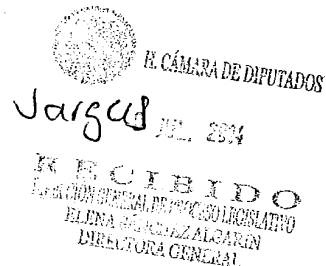 H. CÁMARA DE DIPUTADOS
JUL. 2014
RECIBIDO
DIRECCIÓN GENERAL DE PROCESO LEGISLATIVO
ELENA SÁNCHEZ ALGARÍN
DIRECTORA GENERAL